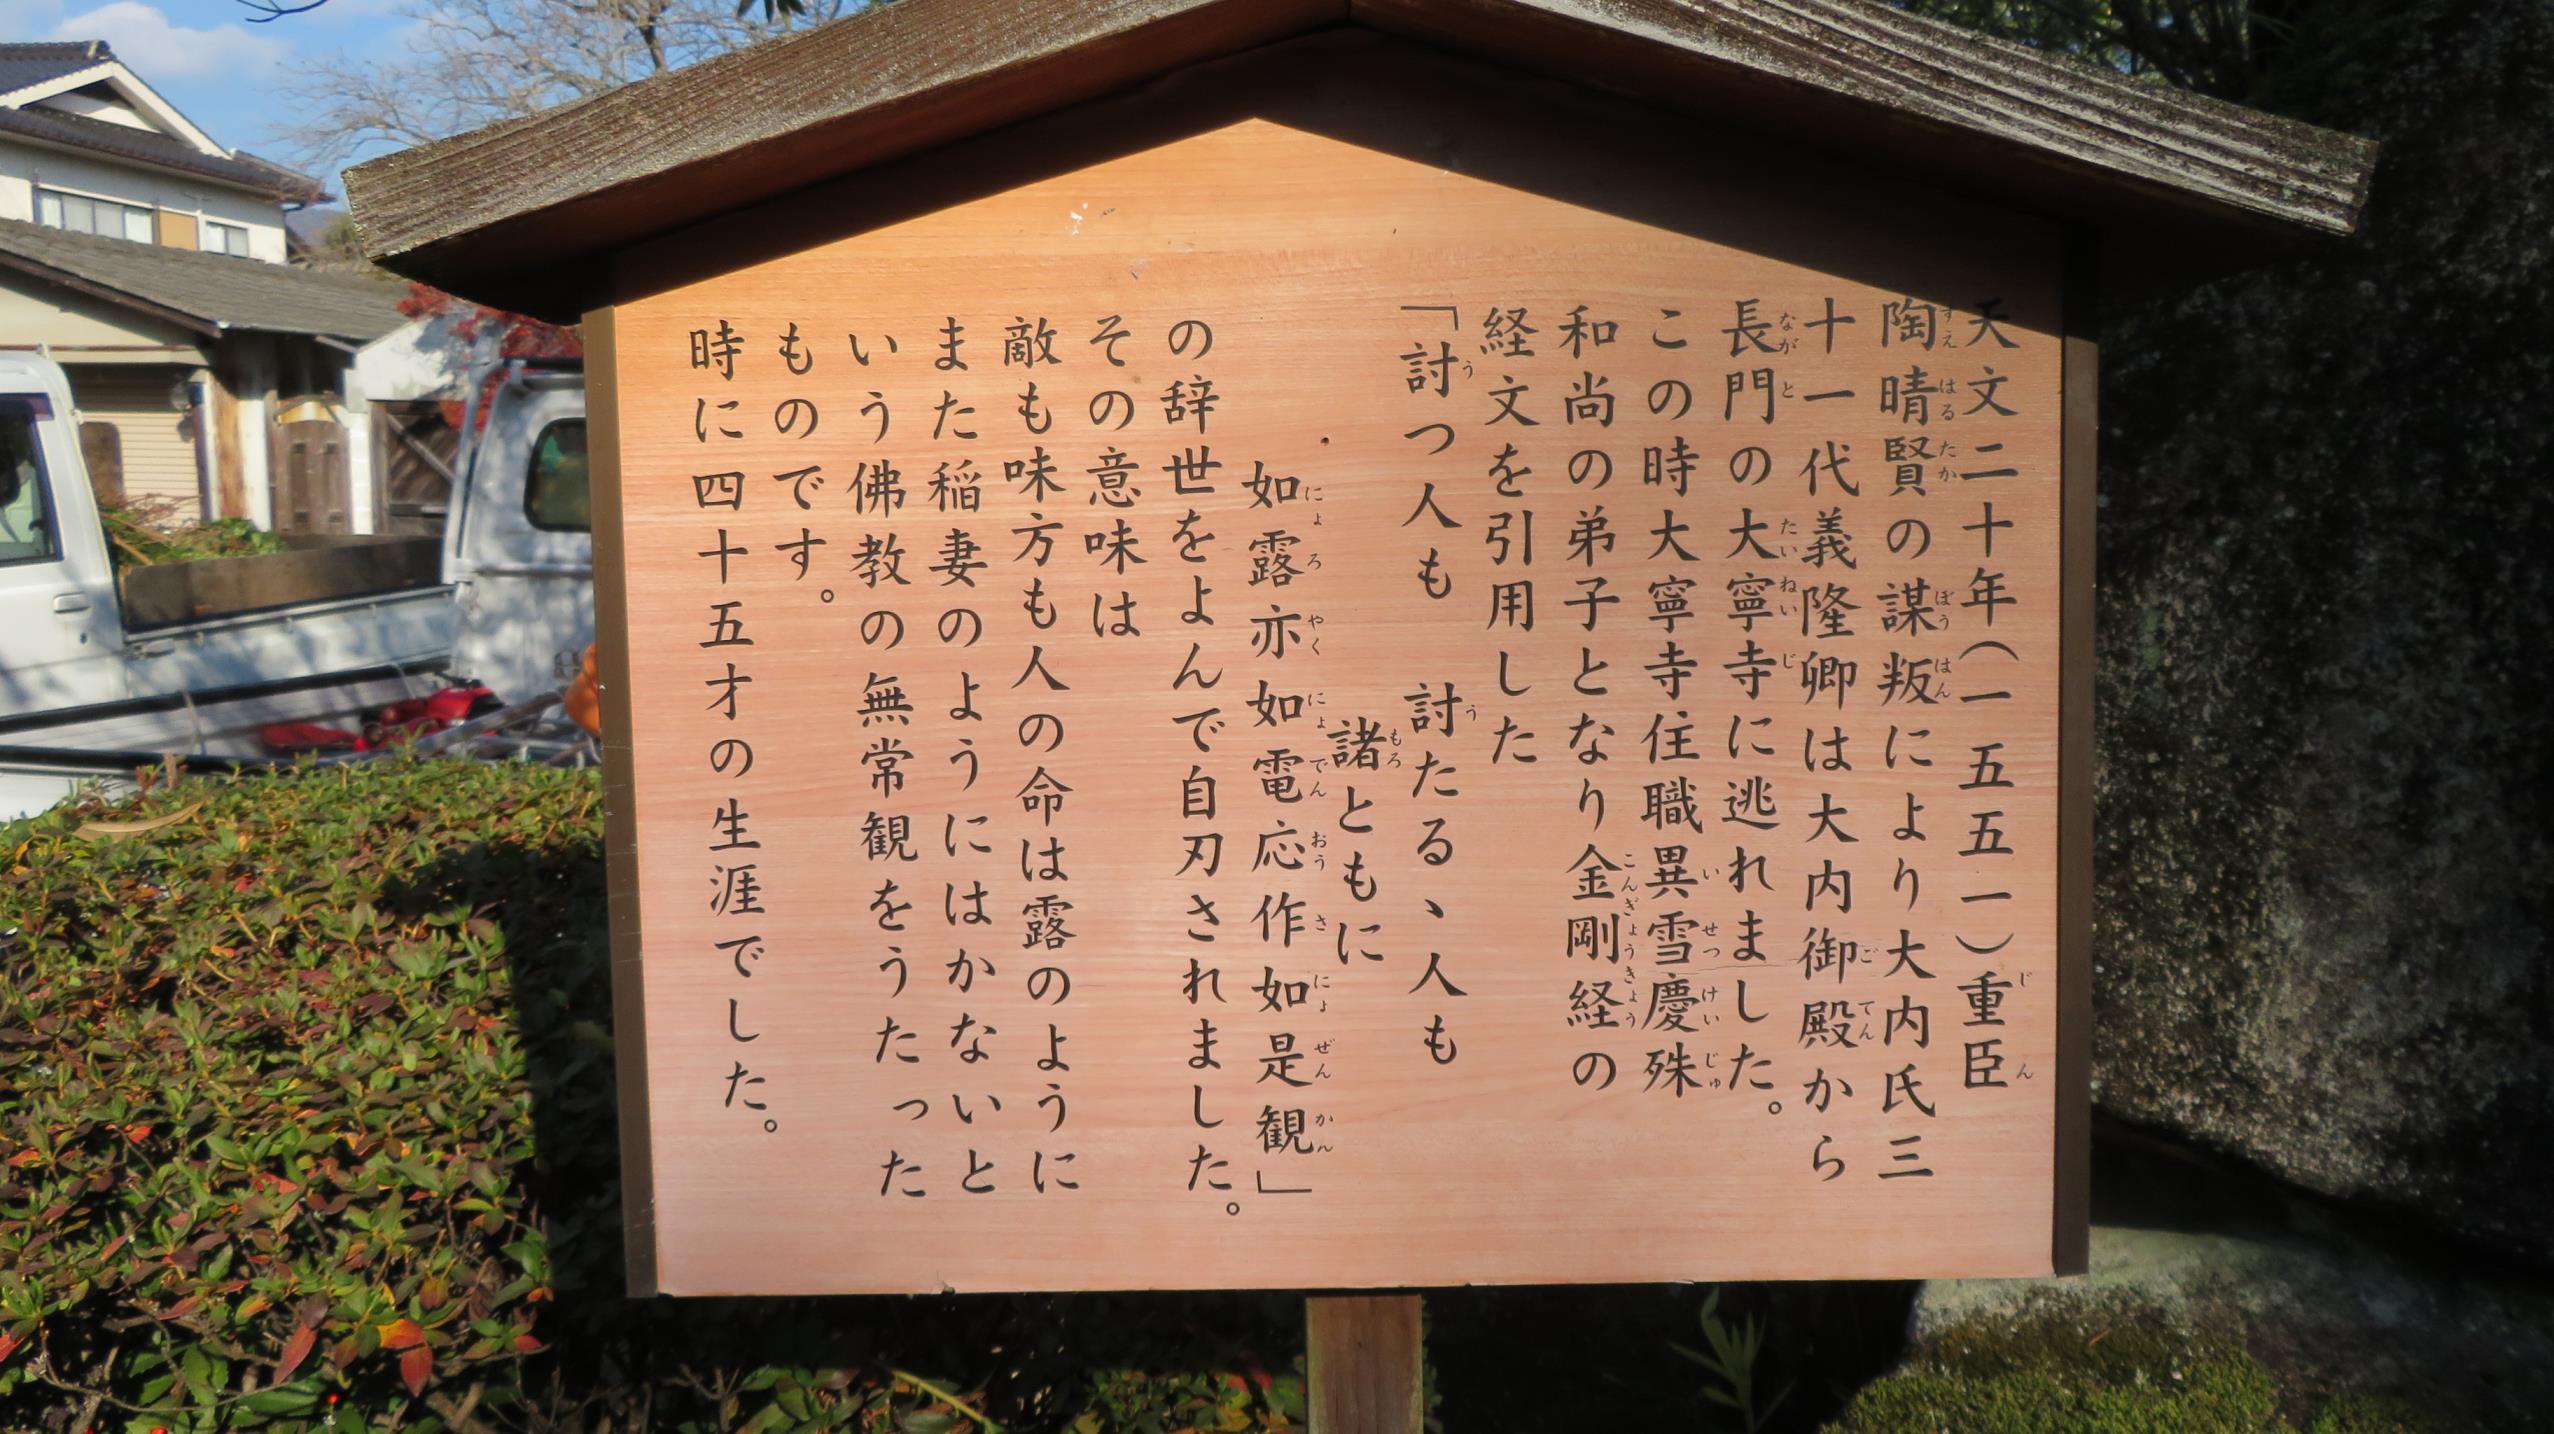 天文二十年（一五五一）重臣
陶晴賢の謀叛により大内氏三
十一代義隆卿は大内御殿から
長門の大寧寺に逃れました。
この時大寧寺住職異雪慶殊
和尚の弟子となり金剛経の
経文を引用した
「討つ人も　討たるゝ人も
諸ともに
如露亦如電応作如是観」
の辞世をよんで自刃されました。
その意味は
敵も味方も人の命は露のように
また稲妻のようにはかないと
いう佛教の無常観をうたった
ものです。
時に四十五才の生涯でした。